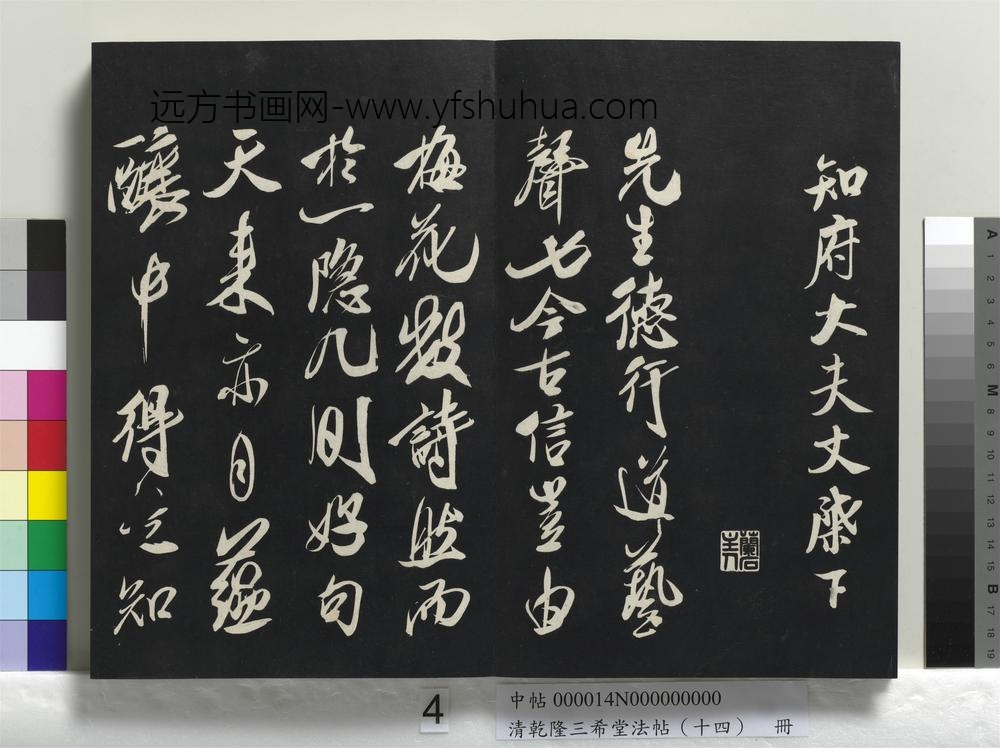 远方书画网-www.yfshuhua.com
知府大夫丈棨下
先生德行道藝
聲今古信豈由
梅花數詩然而
於一隐几間好句
天来亦自蘊
釀中得知
4
中帖 000014N000000000
清乾隆三希堂法帖（十四） 冊
A 1 2 3 4 5 6 M 8 9 10 11 12 13 14 15 B 17 18 19